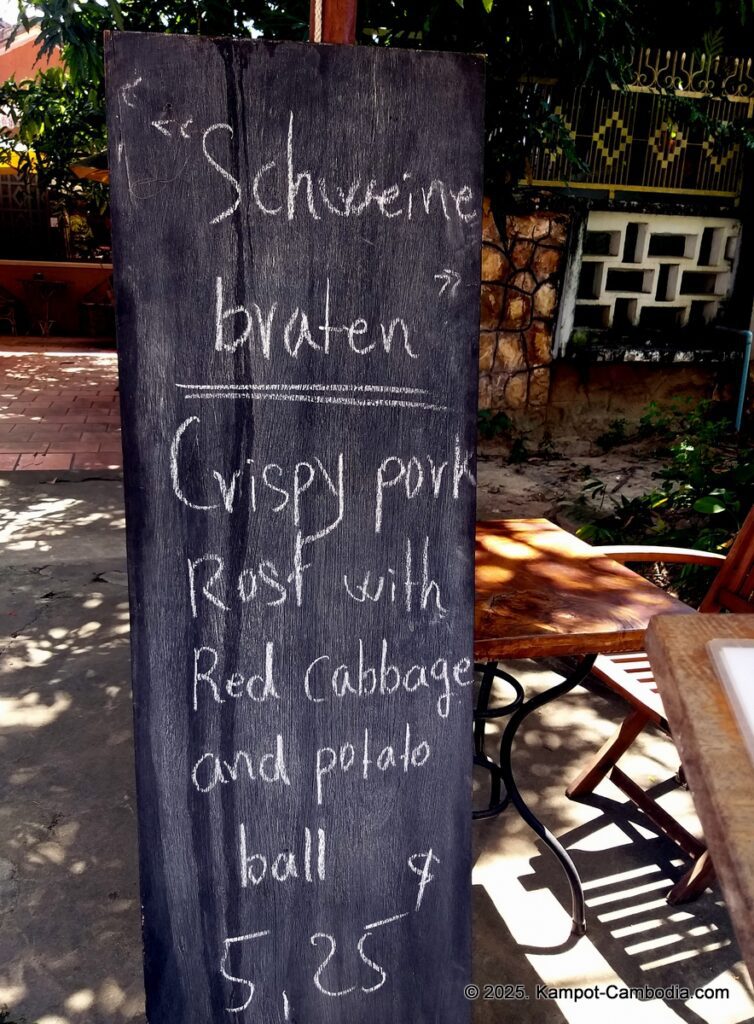 "Schweine
braten"
Crispy pork
Rost with
Red Cabbage
and potato
ball
5,25 $
© 2025. Kampot-Cambodia.com